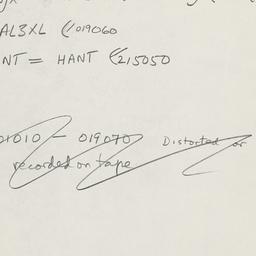 AL3XL (1019060
NT = HANT (215050
01010 – 019070 Distorted or
recorded on tape